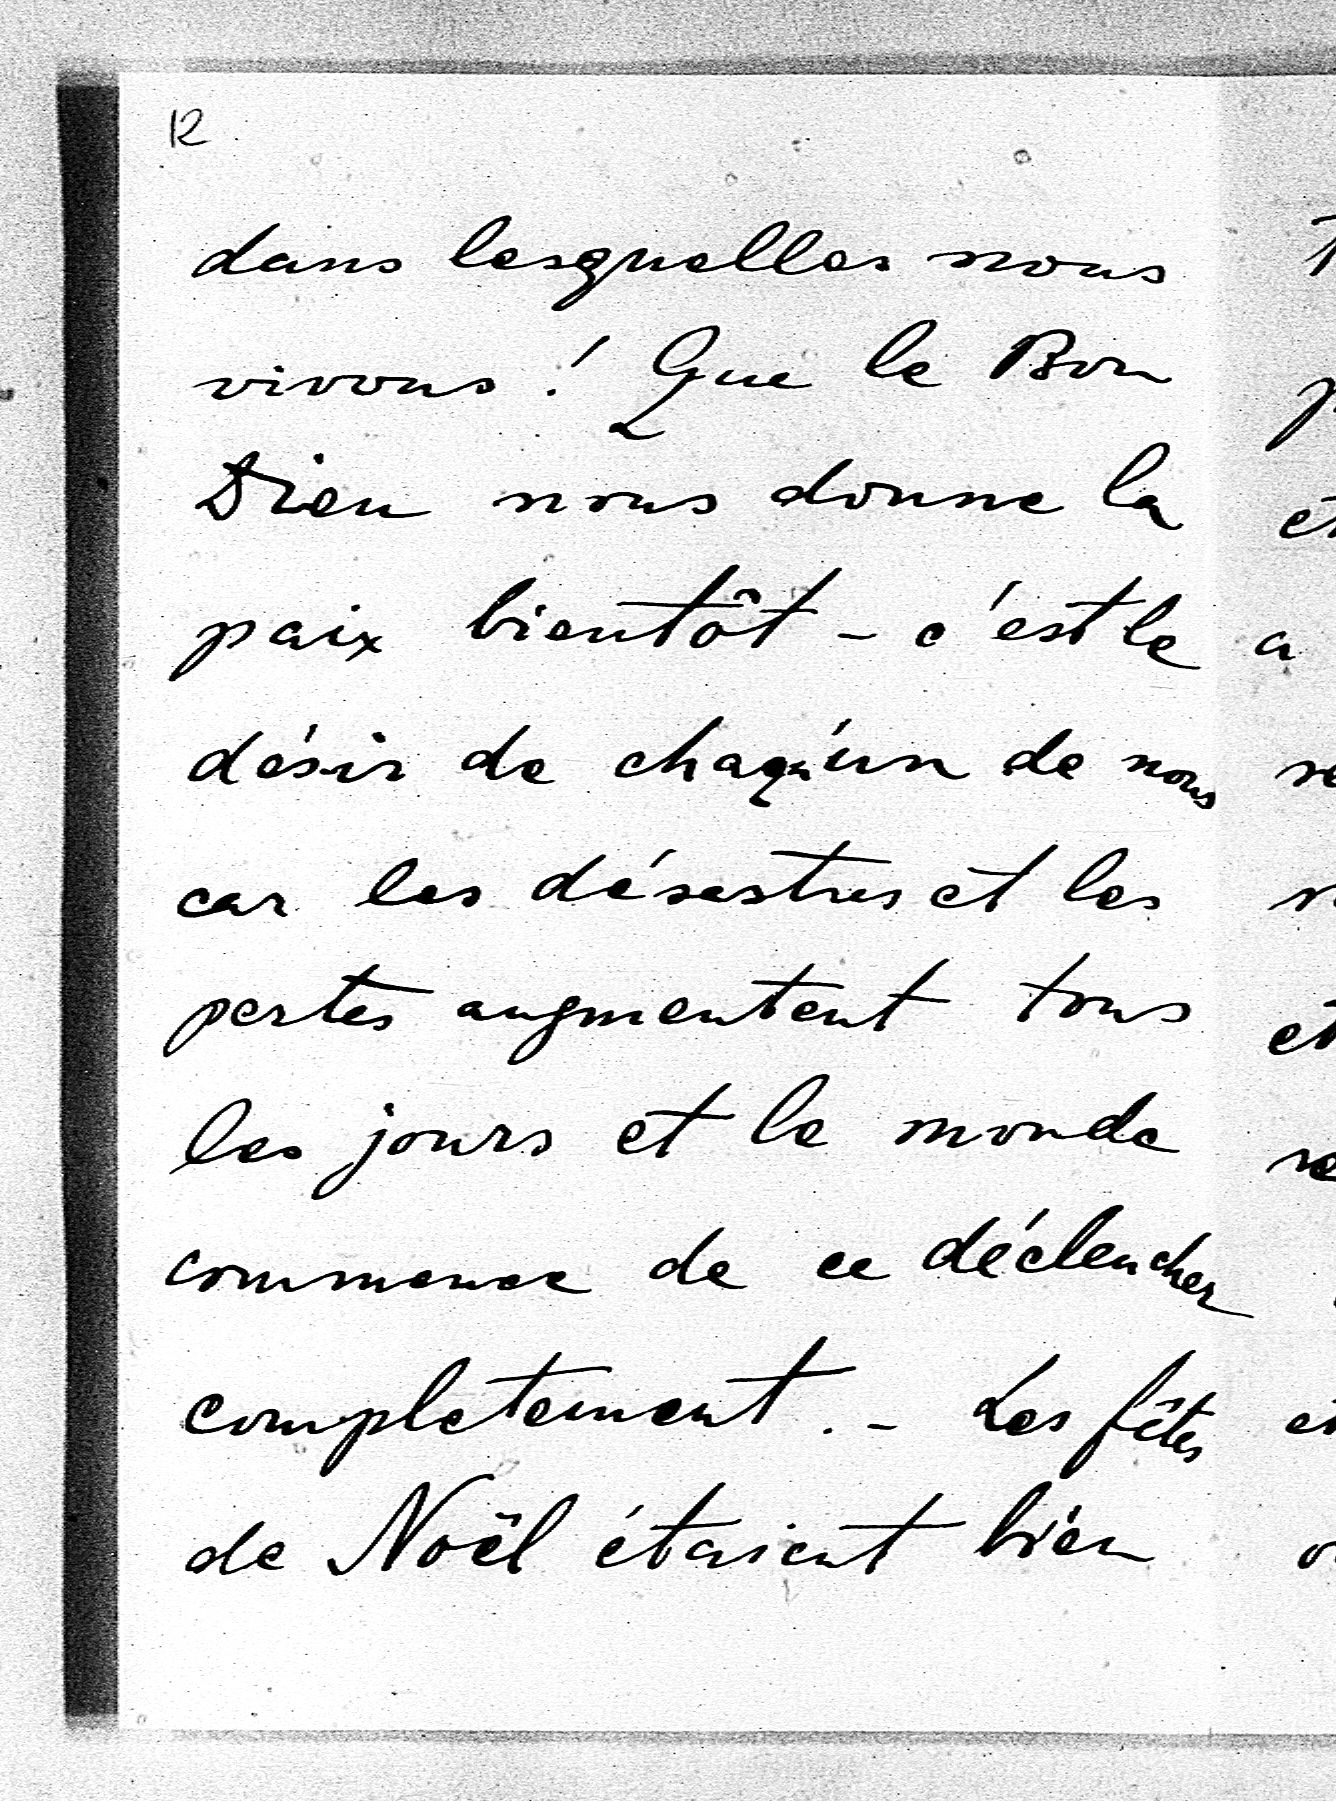 12
dans lesquelles nous
vivons ! Que le Bon
Dieu nous donne la
paix bientôt - c'est le
désir de chaqu'un de nous
car les désastres et les
pertes augmentent tous
les jours et le monde
commence de ce déclencher
completement . - Les fêtes
de Noël étaient bien